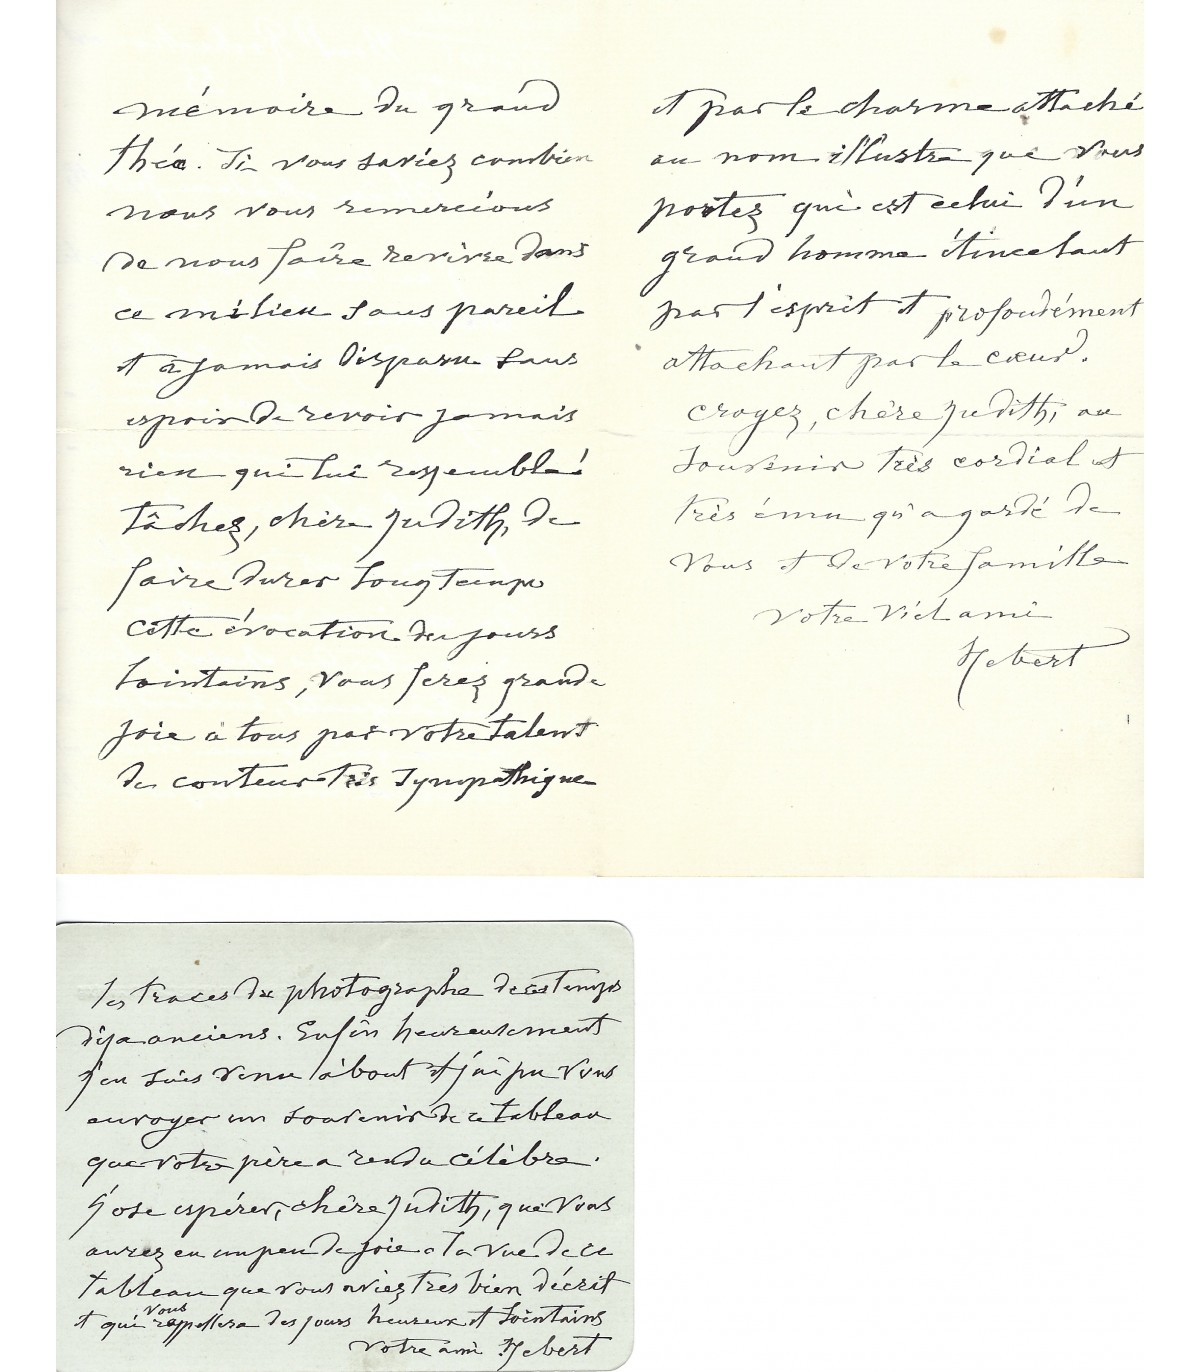 mémoire du grand
théo. Si vous saviez combien
nous vous remercions
de nous faire revivre dans
ce milieu sans pareil
et à jamais disparu sans
espoir de revoir jamais
rien qui lui ressemble!
tâchez, chère Judith, de
faire durer longtemps
cette évocation des jours
lointains, vous ferez grande
joie à tous par votre talent
de conteur très sympathique
et par le charme attaché
au nom illustre que vous
portez qui est celui d'un
grand homme étincelant
par l'esprit et profondément
attachant par le cœur.
croyez, chère Judith, au
souvenir très cordial et
très ému qu'a gardé de
vous et de votre famille
votre vieil ami
Hebert
les traces du photographe de ces temps
déja anciens. Enfin heureusement
j'en suis venu à bout et j'ai pu vous
envoyer un souvenir de ce tableau
que votre père a rendu célèbre.
J'ose espérer, chère Judith, que vous
aurez eu un peu de joie a la vue de ce
tableau que vous aviez tres bien décrit
et qui vous rappellera des jours heureux et lointains
votre ami Hebert